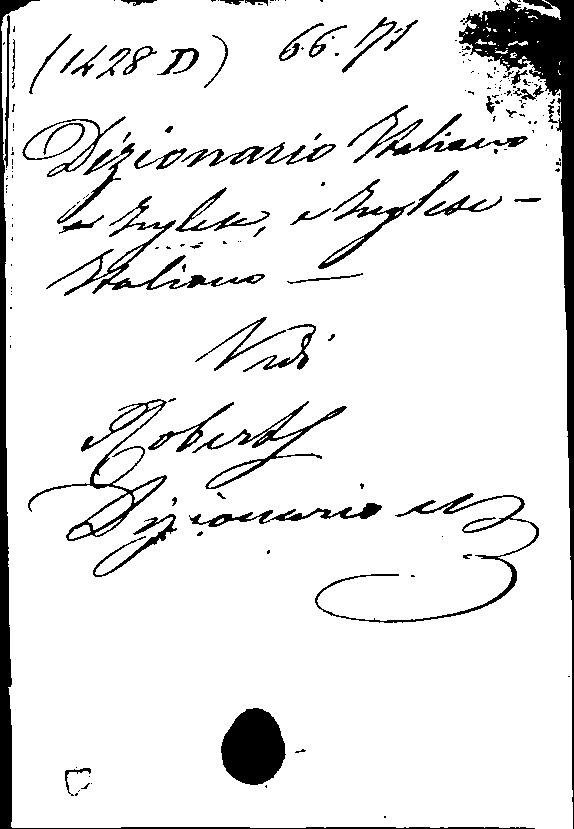 (1428 D) 66.71
Dizionario Italiano
e Inglese, e Inglese –
Italiano —
Vedi
Roberts
Dizionario